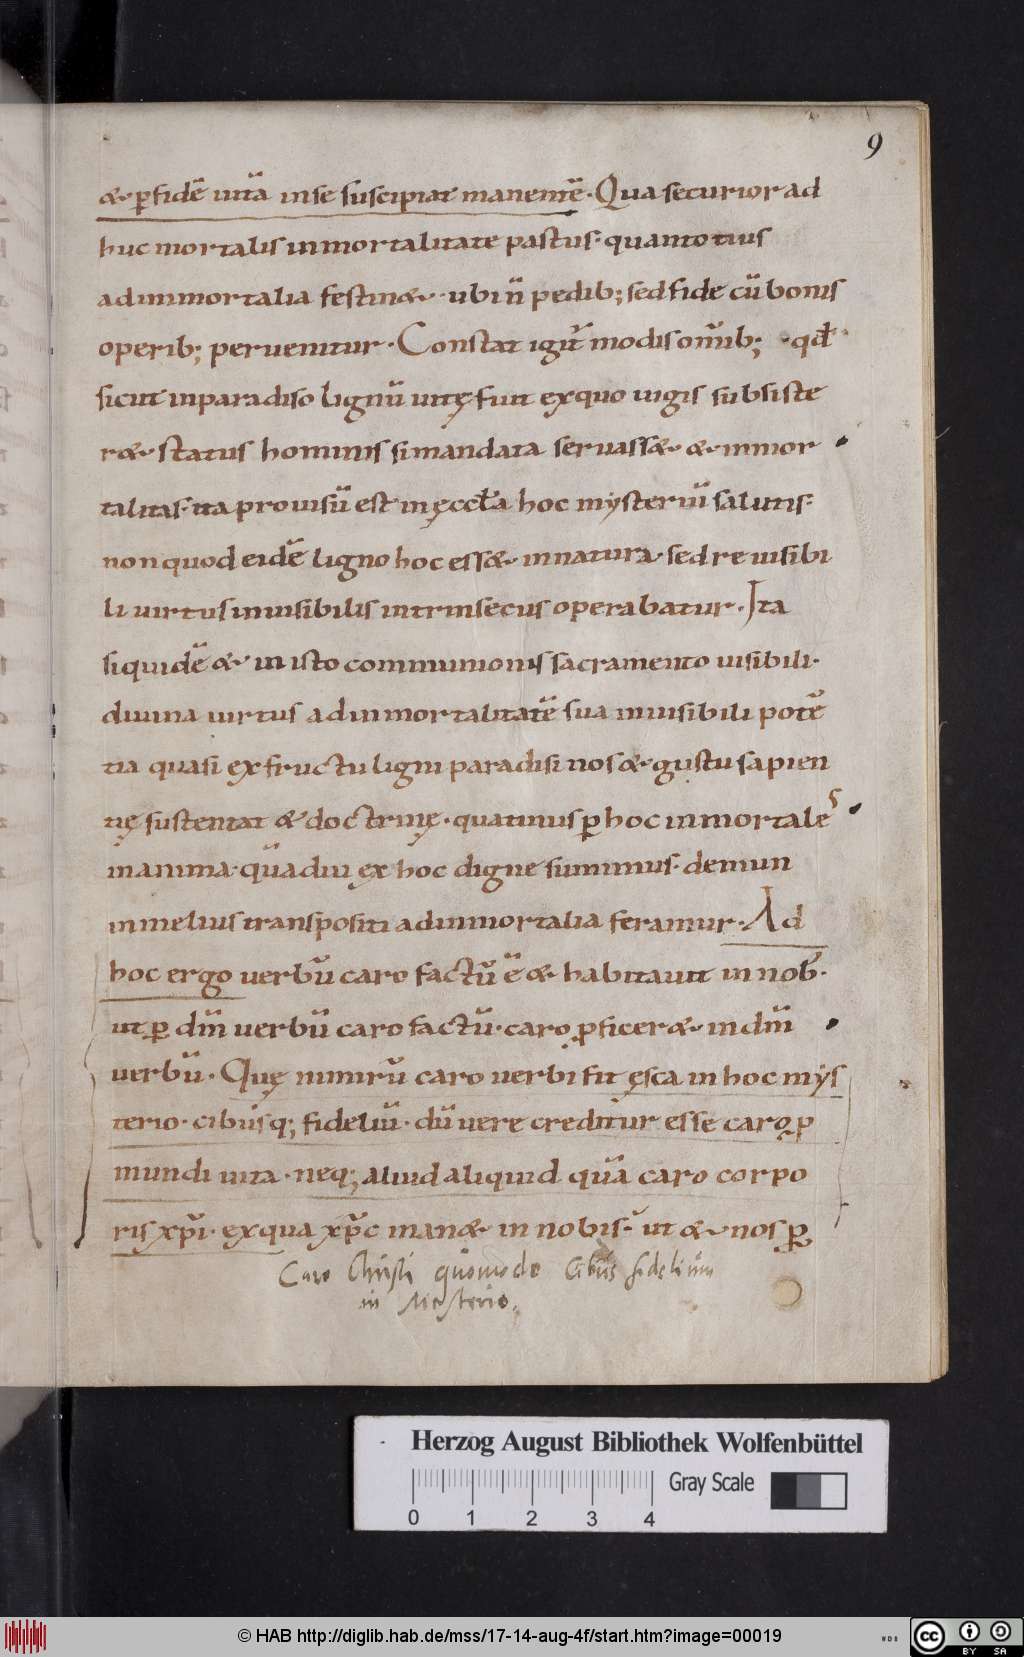 9
& p̱ fidē uitā in se suscipiat manentē. Qua securior ad
huc mortalis inmortalitate pastus. quantotius
ad inmortalia festin&. ubi n̄ pedib; sed fide cū bonis
operib; peruenitur. Constat igit̄ modis om̄ib; qđ
sicut in paradiso lignū uitę fuit ex quo iugis subsiste
r& status hominis si mandata seruass& & inmor
talitas. ita prouisū est in ęccła hoc mysteriū salutis.
non quod eidē ligno hoc ess& in natura. sed re uisibi
li uirtus inuisibilis intrinsecus operabatur. Ita
siquidē & in isto communionis sacramento uisibili.
diuina uirtus ad inmortalitatē sua inuisibili potē
tia quasi ex fructu ligni paradisi nos & gustu sapien
tię sustentat & doctrinę. quatinus p̱ hoc inmortales
in anima. quādiu ex hoc digne sumimus. demun
in melius transpositi ad inmortalia feramur. Ad
hoc ergo verbū caro factū ē & habitauit in nob̄.
ut p̱ dm̄ uerbū caro factū. caro p̱ficer& in dm̄
verbū. Quę nimirū caro verbi fit ęsca in hoc mys
terio. cibusq; fideliū. dū vere creditur esse caro p̱
mundi uita. neq; aliud aliquid quā caro corpo
ris xp̄i. ex qua xp̄c man& in nobis. ut & nos p̱
Caro Christi quomodo Cibus fidelium
in Misterio.
Herzog August Bibliothek Wolfenbüttel
Gray Scale
0 1 2 3 4
© HAB http://diglib.hab.de/mss/17-14-aug-4f/start.htm?image=00019
WDB
cc BY SA